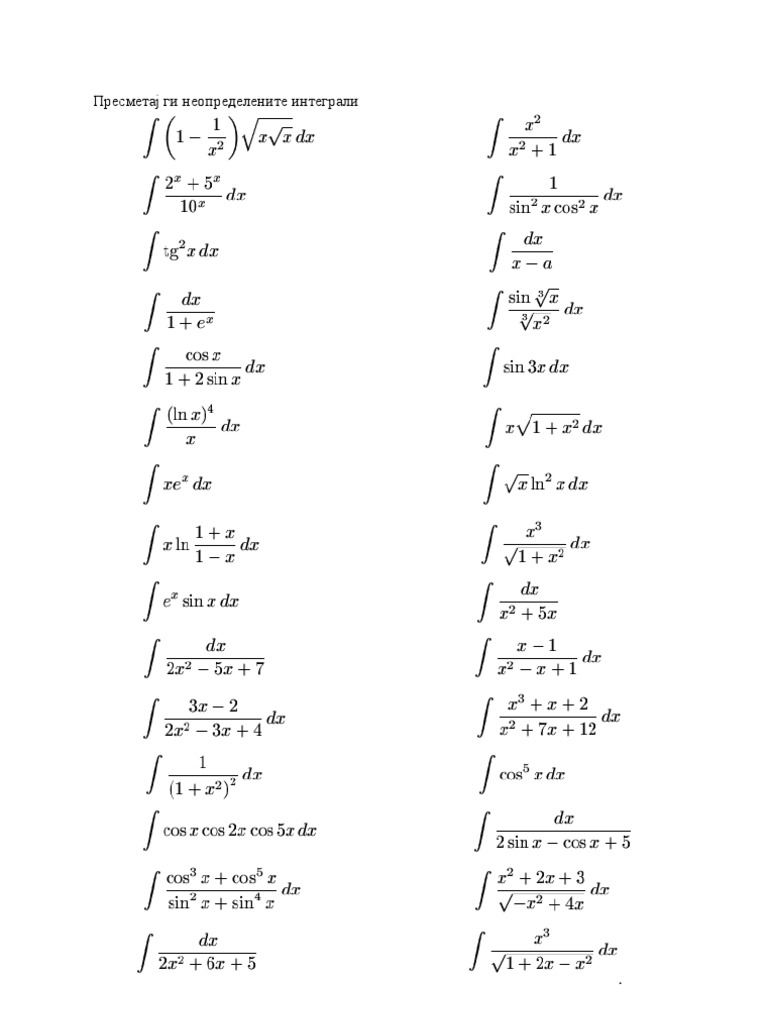 Пресметај ги неопределените интеграли
∫ (1 − 1/x²) √(x√x) dx    ∫ x²/(x² + 1) dx
∫ (2ˣ + 5ˣ)/10ˣ dx    ∫ 1/(sin² x cos² x) dx
∫ tg² x dx    ∫ dx/(x − a)
∫ dx/(1 + eˣ)    ∫ sin ∛x / ∛(x²) dx
∫ cos x/(1 + 2 sin x) dx    ∫ sin 3x dx
∫ (ln x)⁴/x dx    ∫ x√(1 + x²) dx
∫ xeˣ dx    ∫ √x ln² x dx
∫ x ln (1 + x)/(1 − x) dx    ∫ x³/√(1 + x²) dx
∫ eˣ sin x dx    ∫ dx/(x² + 5x)
∫ dx/(2x² − 5x + 7)    ∫ (x − 1)/(x² − x + 1) dx
∫ (3x − 2)/(2x² − 3x + 4) dx    ∫ (x³ + x + 2)/(x² + 7x + 12) dx
∫ 1/(1 + x²)² dx    ∫ cos⁵ x dx
∫ cos x cos 2x cos 5x dx    ∫ dx/(2 sin x − cos x + 5)
∫ (cos³ x + cos⁵ x)/(sin² x + sin⁴ x) dx    ∫ (x² + 2x + 3)/√(−x² + 4x) dx
∫ dx/(2x² + 6x + 5)    ∫ x³/√(1 + 2x − x²) dx
.